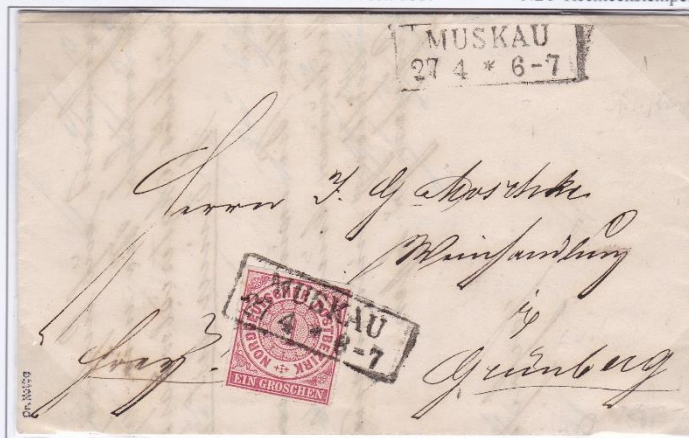 MUSKAU
27 4 * 6-7
Herrn J. G. Moschke
Weinhandlung
in
Grünberg
frey.
MUSKAU
4 * 6-7
NORDDEUTSCHER POSTBEZIRK
EIN GROSCHEN